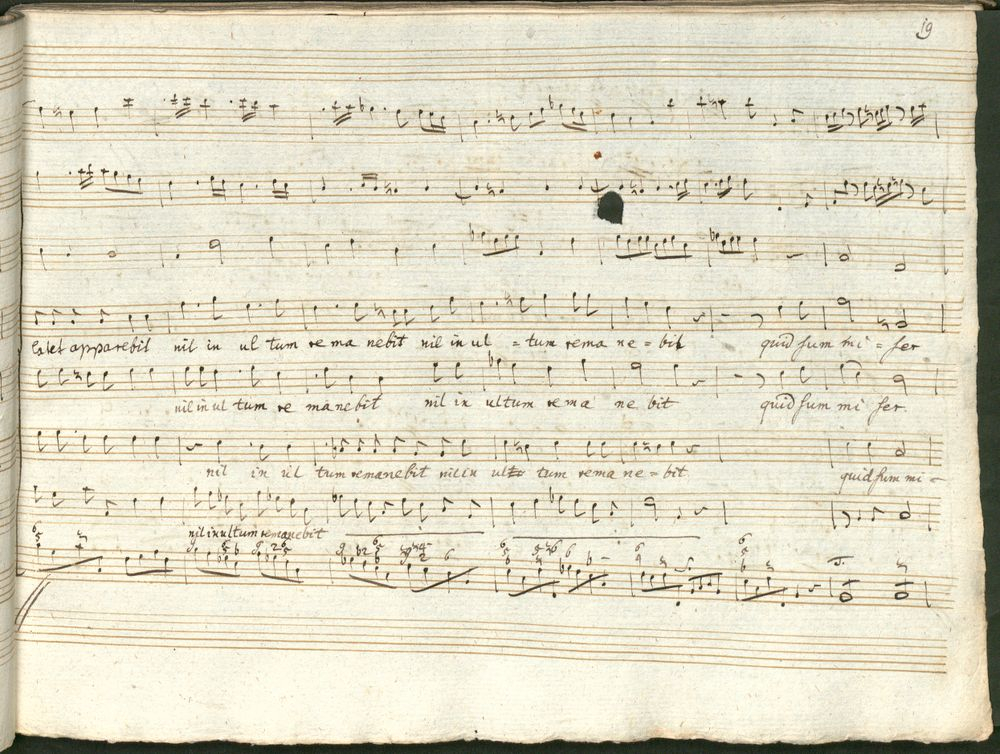 19
latet apparebit nil in ul tum re ma nebit nil in ul = tum rema ne = bit quid sum mi = ser
nil in ul tum re manebit nil in ultum re ma ne bit quid sum mi ser.
nil in ul tum remanebit nil in ul tum rema ne = bit quid sum mi =
nil in ultum remanebit